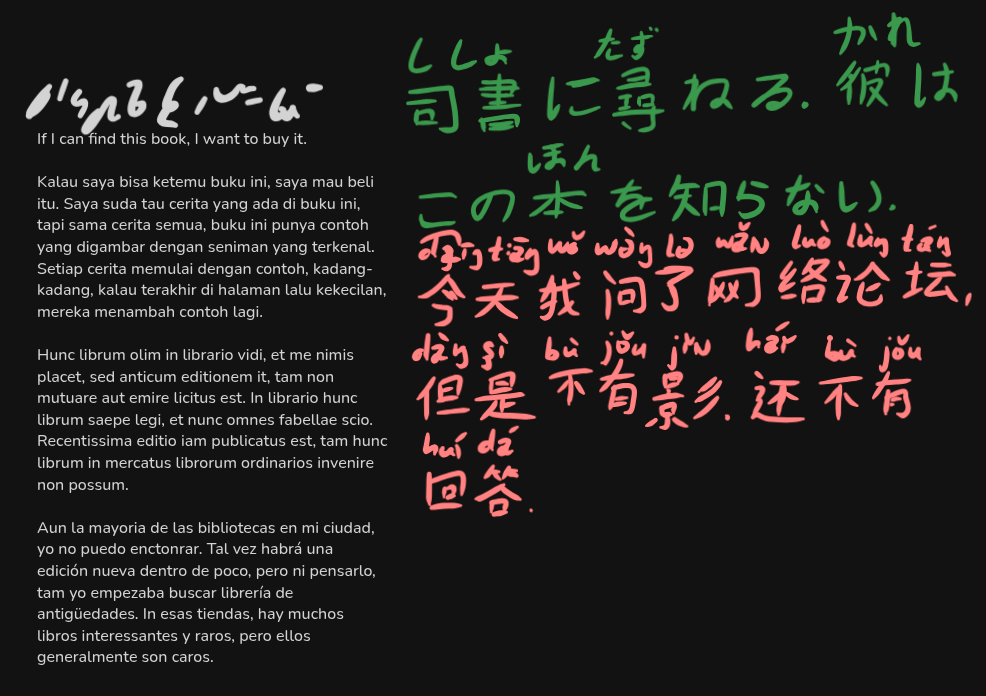 If I can find this book, I want to buy it.
Kalau saya bisa ketemu buku ini, saya mau beli
itu. Saya suda tau cerita yang ada di buku ini,
tapi sama cerita semua, buku ini punya contoh
yang digambar dengan seniman yang terkenal.
Setiap cerita memulai dengan contoh, kadang-
kadang, kalau terakhir di halaman lalu kekecilan,
mereka menambah contoh lagi.
Hunc librum olim in librario vidi, et me nimis
placet, sed anticum editionem it, tam non
mutuare aut emire licitus est. In librario hunc
librum saepe legi, et nunc omnes fabellae scio.
Recentissima editio iam publicatus est, tam hunc
librum in mercatus librorum ordinarios invenire
non possum.
Aun la mayoria de las bibliotecas en mi ciudad,
yo no puedo enctonrar. Tal vez habrá una
edición nueva dentro de poco, pero ni pensarlo,
tam yo empezaba buscar librería de
antigüedades. In esas tiendas, hay muchos
libros interessantes y raros, pero ellos
generalmente son caros.
ししょ たず かれ
司書に尋ねる. 彼は
ほん
この本を知らない.
wǒ luò
今天我问了网络论坛,
bù jǒu bù jǒu
但是不有影. 还不有
huí dá
回答.